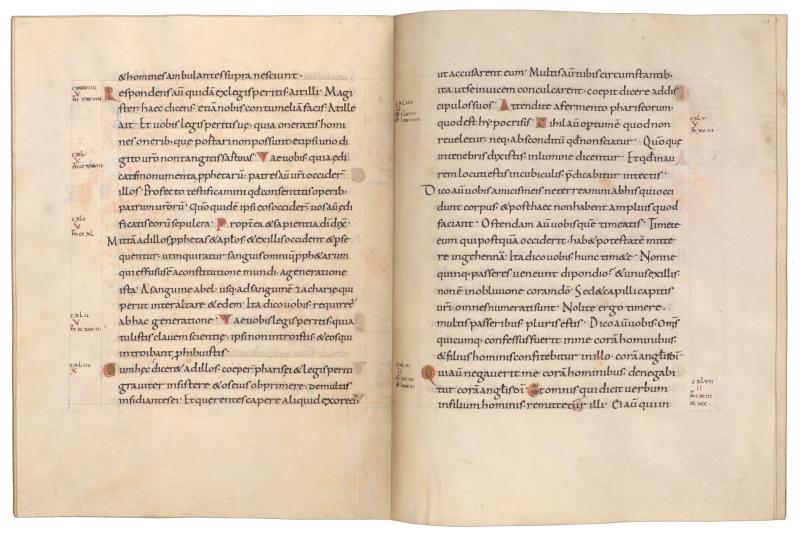 & homines ambulantes supra nesciunt ·
Respondens aū quidā ex legis peritis ait illi · Magi
ster haec dicens · etiā nobis contumeliā facis · At ille
ait · Et vobis legis peritis vę · quia oneratis homi
nes onerib; quę portari non possunt · et ipsi uno di
gito ur̄o non tangitis sarcinas · Vae vobis · quia ędi
ficatis monumenta pphetarū · patres aū ur̄i occider̄
illos · Profecto testificamini qd̄ consentitis operib;
patrum uroru · Quo quidē ipsi eos occider̄ · vos aū ędi
ficatis eorū sepulcra · Propt̄ea & sapientia di dix̄ ·
Mittā ad illos pphetas & aptos & ex illis occident & pse
quentur · ut inquiratur sanguis omniū pph&arum
qui effusus e a constitutione mundi · a generatione
ista · A sanguine abel · usq; ad sanguinē zacharię qui
periit inter altare & edem · Ita dico vobis · requiret̄
ab hac generatione · Vae vobis legis peritis · quia
tulistis clavem scientię · ipsi non introistis · & eos qui
introibant phibuistis ·
Cum hec dicer& ad illos · coeper̄ pharisei & legis periti
graviter insistere & os eius obprimere · de multis
insidiantes ei · Et querentes capere aliquid ex ore ei'
ut accusarent eum · Multis aū turbis circumstantib;
ita ut se invicem conculcarent · coepit dicere ad dis
cipulos suos · Attendite a fermento phariseorum ·
quod est hypocrisis · Nihil aū optum ē quod non
reveletur · neq; absconditū qd̄ non sciatur · Quo que
in tenebris dixistis · in lumine dicentur · Et qd̄ in au
rem locuti estis in cubiculis · p̄dicabitur in tectis ·
Dico aū vobis amicis meis ne terreamini ab his qui occi
dunt corpus · & post haec non habent amplius quod
faciant · Ostendam aū vobis quē timeatis · Timete
eum qui postquā occiderit · hab& potestatē mitte
re in gehennā · Ita dico vobis · hunc tim&e · Nonne
quinq; passeres veneunt dipondio · & unus ex illis ·
non ē in oblivione corā dō · Sed & capilli capitis
ur̄i · omnes numerati sunt · Nolite ergo timere ·
multis passerib; pluris estis · Dico aū vobis · Om̄s
quicumq; confessus fuerit in me corā hominib; ·
& filius hominis confitebitur in illo · corā anglis dī ·
Qui aū negaverit me corā hominib; · denegabi
tur corā anglis dī · Et omnis qui dicit verbum
in filium hominis · remittetur illi · Ei aū qui in